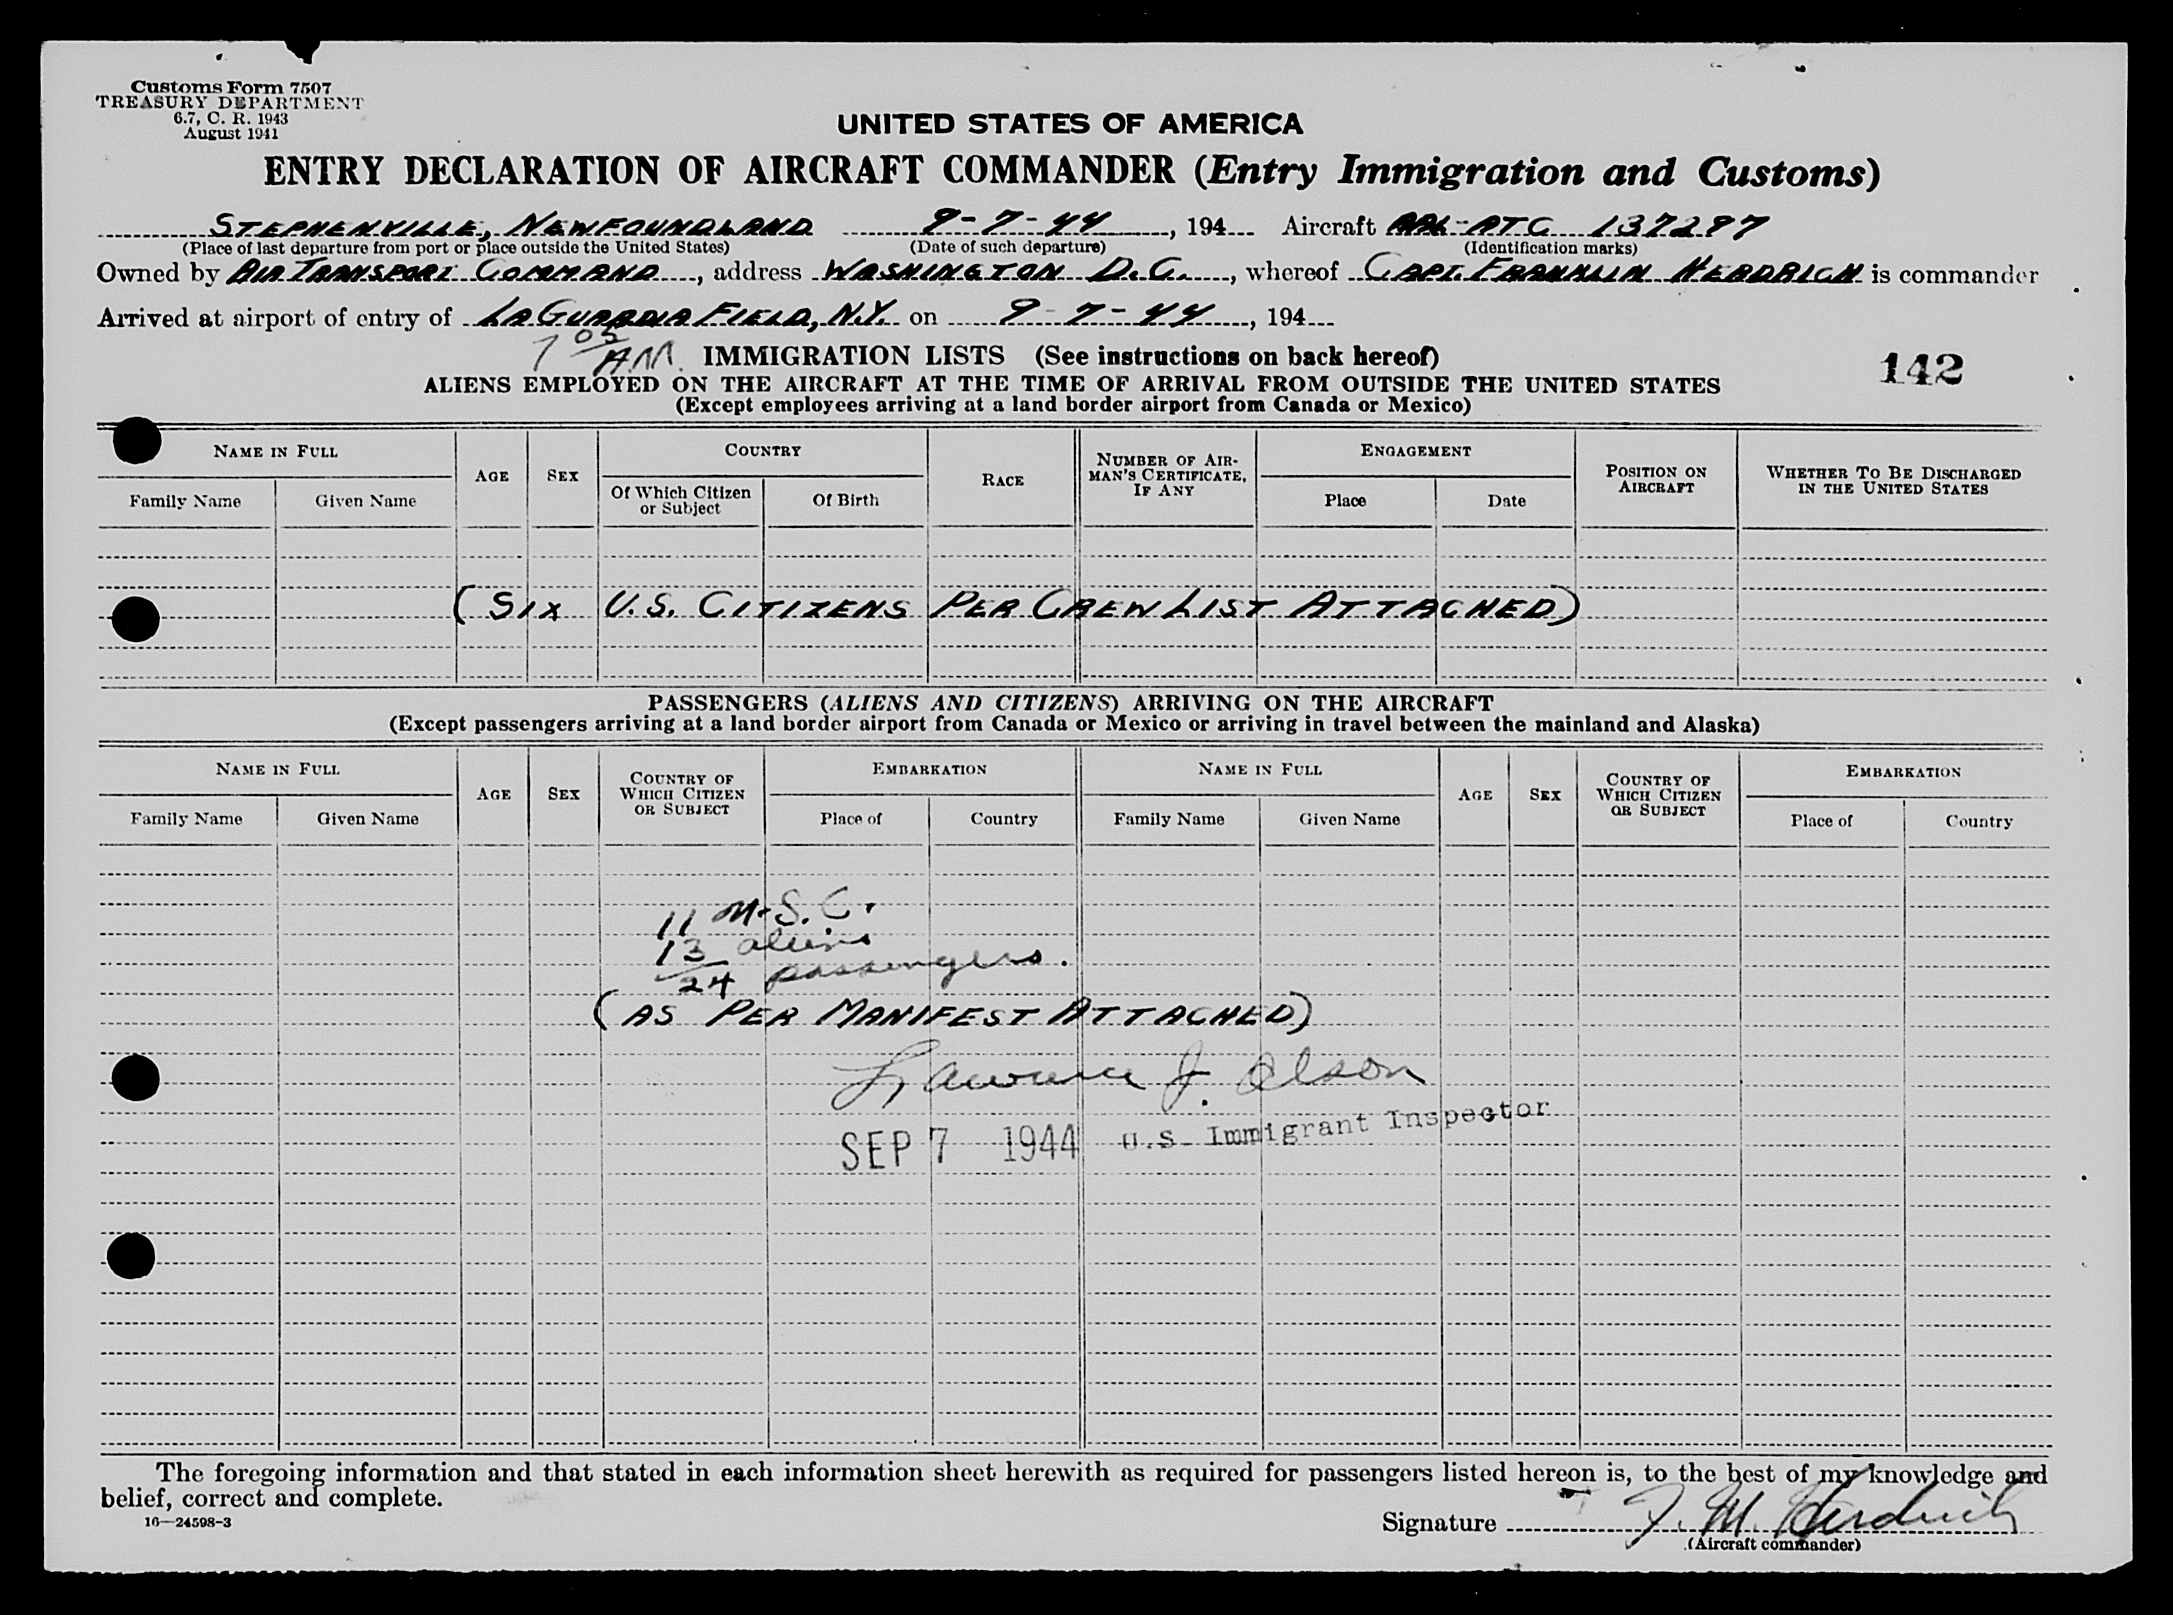 Customs Form 7507
TREASURY DEPARTMENT
6.7, C. R. 1943
August 1941
UNITED STATES OF AMERICA
ENTRY DECLARATION OF AIRCRAFT COMMANDER (Entry Immigration and Customs)
STEPHENVILLE, NEWFOUNDLAND 9-7-44, 194 Aircraft AAL-ATC 137297
(Place of last departure from port or place outside the United States) (Date of such departure) (Identification marks)
Owned by AIR TRANSPORT COMMAND, address WASHINGTON D.C., whereof CAPT. FRANKLIN HERDRICH is commander
Arrived at airport of entry of LA GUARDIA FIELD, N.Y. on 9-7-44, 194
7 05 A.M. IMMIGRATION LISTS (See instructions on back hereof)
142
ALIENS EMPLOYED ON THE AIRCRAFT AT THE TIME OF ARRIVAL FROM OUTSIDE THE UNITED STATES
(Except employees arriving at a land border airport from Canada or Mexico)
NAME IN FULL
Family Name Given Name
AGE
SEX
COUNTRY
Of Which Citizen or Subject
Of Birth
RACE
NUMBER OF AIR-
MAN'S CERTIFICATE,
IF ANY
ENGAGEMENT
Place Date
POSITION ON
AIRCRAFT
WHETHER TO BE DISCHARGED
IN THE UNITED STATES
(SIX U.S. CITIZENS PER CREW LIST ATTACHED)
PASSENGERS (ALIENS AND CITIZENS) ARRIVING ON THE AIRCRAFT
(Except passengers arriving at a land border airport from Canada or Mexico or arriving in travel between the mainland and Alaska)
NAME IN FULL
Family Name Given Name
AGE
SEX
COUNTRY OF
WHICH CITIZEN
OR SUBJECT
EMBARKATION
Place of Country
NAME IN FULL
Family Name Given Name
AGE
SEX
COUNTRY OF
WHICH CITIZEN
OR SUBJECT
EMBARKATION
Place of Country
11 U.S.C.
13 aliens
24 passengers.
(AS PER MANIFEST ATTACHED)
Lawrence J. Olson
SEP 7 1944 U.S. Immigrant Inspector
The foregoing information and that stated in each information sheet herewith as required for passengers listed hereon is, to the best of my knowledge and
belief, correct and complete.
16—24598-3
Signature F. M. Herdrich
(Aircraft commander)